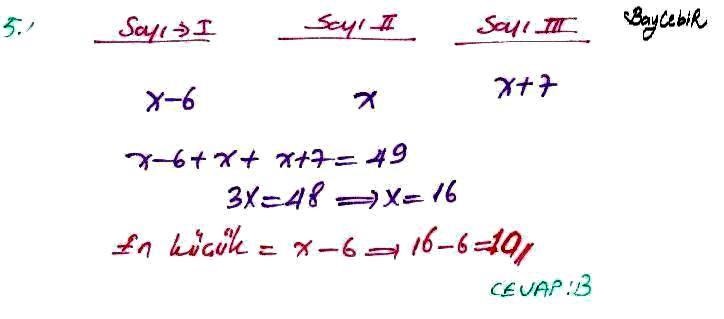 5.) Sayı → I Sayı II Sayı III BayCebiR
x-6 x x+7
x-6+x+ x+7=49
3x=48 ⟹ x=16
En küçük = x-6 ⟹ 16-6=10//
CEVAP:B